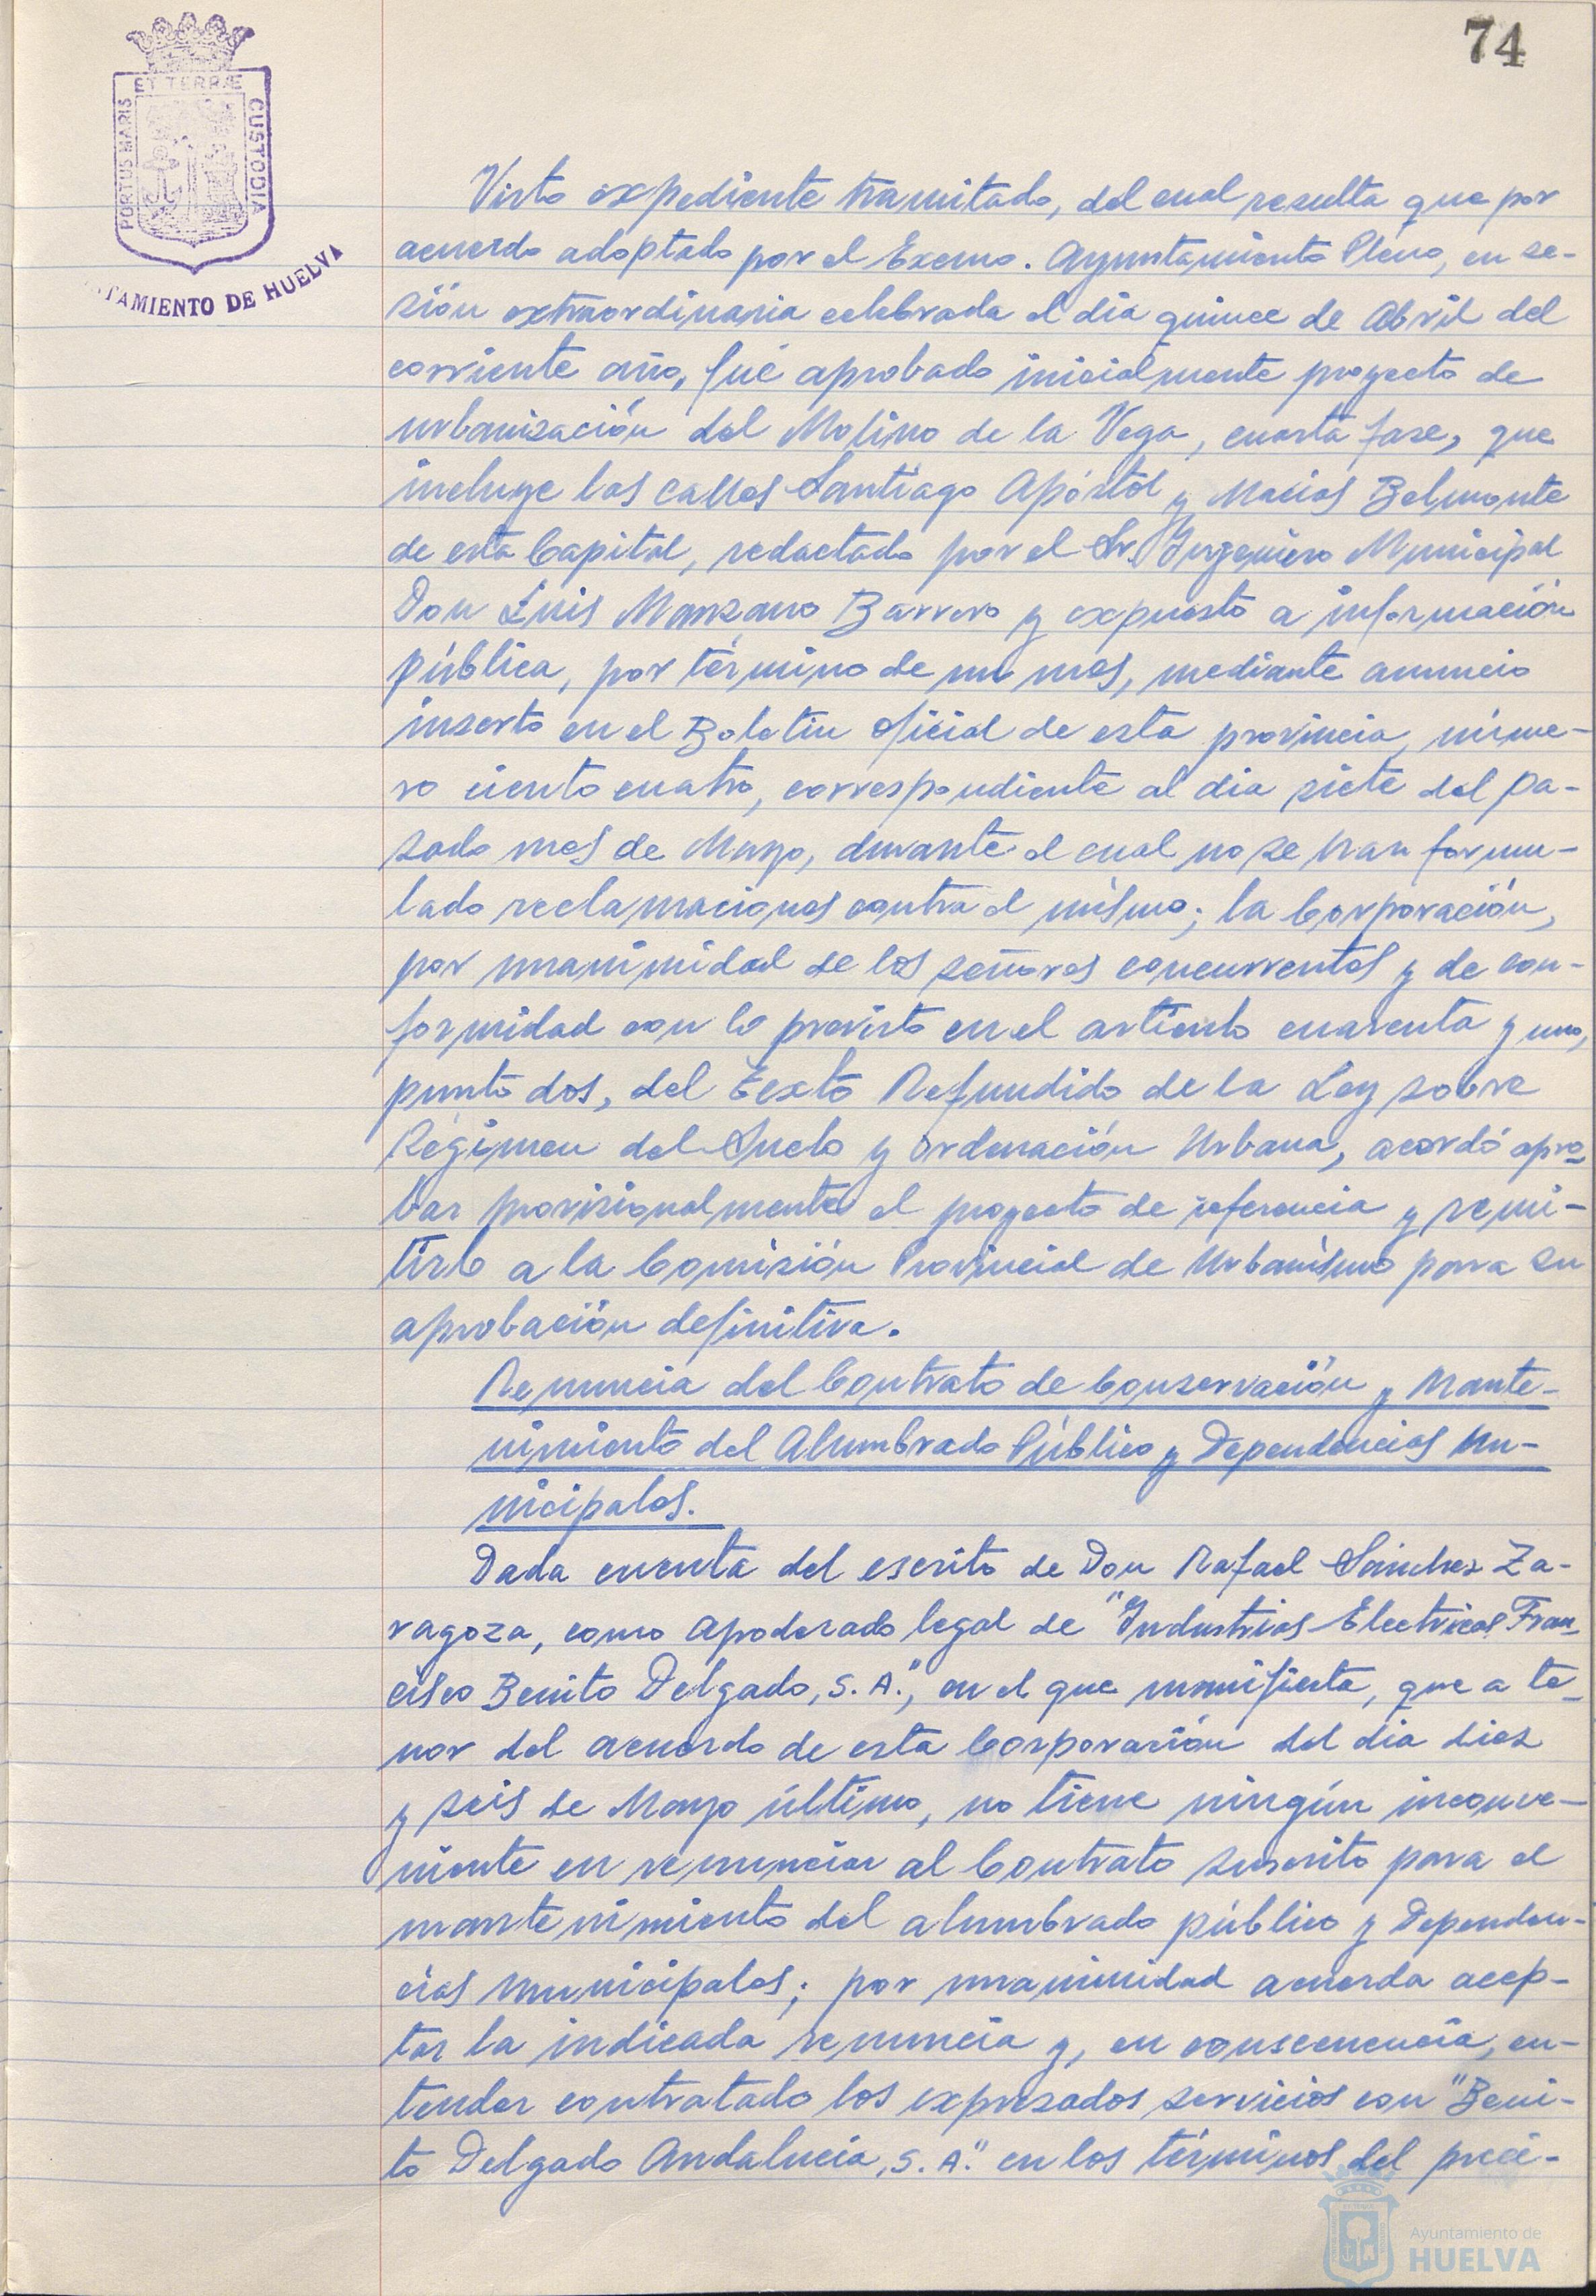 74
PORTUS MARIS
ET TERRÆ
CUSTODIA
TAMIENTO DE HUELVA
Visto expediente tramitado, del cual resulta que por
acuerdo adoptado por el Excmo. Ayuntamiento Pleno, en se-
sión extraordinaria celebrada el día quince de Abril del
corriente año, fué aprobado inicialmente proyecto de
urbanización del Molino de la Vega, cuarta fase, que
incluye las calles Santiago Apóstol y Macias Belmonte
de esta Capital, redactado por el Sr. Ingeniero Municipal
Don Luis Manzano Barrero y expuesto a información
pública, por término de un mes, mediante anuncio
inserto en el Boletin Oficial de esta provincia, núme-
ro ciento cuatro, correspondiente al dia siete del pa-
sado mes de Mayo, durante el cual no se han formu-
lado reclamaciones contra el mismo; la Corporación,
por unanimidad de los señores concurrentes y de con-
formidad con lo previsto en el artículo cuarenta y uno,
punto dos, del Texto Refundido de la Ley sobre
Régimen del Suelo y Ordenación Urbana, acordó apro-
bar provisionalmente el proyecto de referencia y remi-
tirlo a la Comisión Provincial de Urbanismo para su
aprobación definitiva.
Renuncia del Contrato de Conservación y Mante-
nimiento del Alumbrado Público y Dependencias Mu-
nicipales.
Dada cuenta del escrito de Don Rafael Sánchez Za-
ragoza, como Apoderado legal de "Industrias Electricas Fran-
cisco Benito Delgado, S. A.", en el que manifiesta, que a te-
nor del acuerdo de esta Corporación del dia diez
y seis de Mayo último, no tiene ningún inconve-
niente en renunciar al Contrato suscrito para el
mantenimiento del alumbrado público y Dependen-
cias Municipales; por unanimidad acuerda acep-
tar la indicada renuncia y, en consecuencia, en-
tender contratado los expresados servicios con "Beni-
to Delgado Andalucía, S. A." en los términos del preci-
Ayuntamiento de
HUELVA